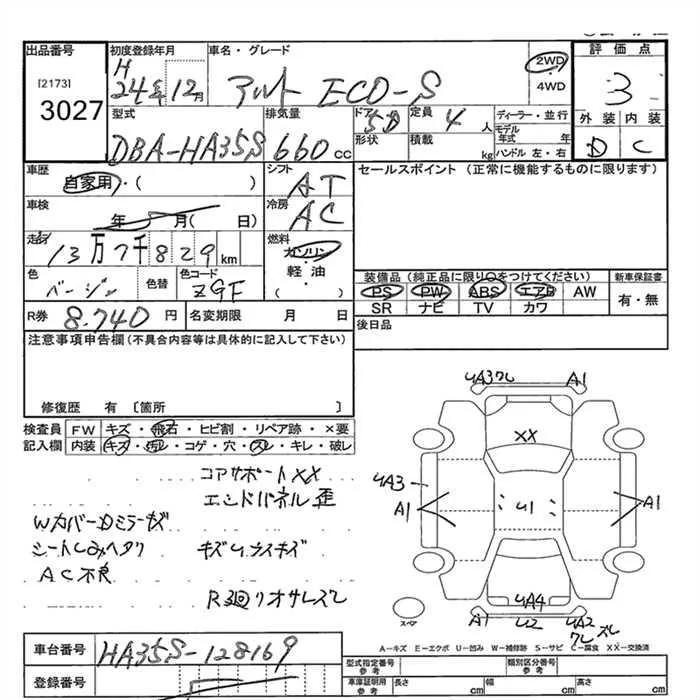 出品番号 初度登録年月 車名・グレード 評価点
[2173] 3027 H 24年 12月 アルト ECO-S 2WD ・ 4WD 3
型式 排気量 ドア 定員 ディーラー・並行 外装 内装
DBA-HA35S 660cc 5D 4人 モデル年式 年 D C
形状 積載 kg ハンドル 左・右
車歴 自家用・( ) シフト AT セールスポイント (正常に機能するものに限ります)
車検 年 月( 日) 冷房 AC
走行 13万7千829km 燃料 ガソリン・軽油・( )
色 ベージュ 色替 色コード ZGF
装備品 (純正品に限り○をつけてください) 新車保証書
PS PW ABS エアB AW 有・無
SR ナビ TV カワ
R券 8.740円 名変期限 月 日 後日品
注意事項申告欄 (不具合内容等は具体的に記入して下さい)
修復歴 有 〔箇所 〕
検査員 FW キズ・飛石・ヒビ割・リペア跡・×要
記入欄 内装 キズ・汚レ・コゲ・穴・スレ・キレ・破レ
コアサポートXX
エンドパネル歪
WカバーDミラーキズ
シートしみヘタリ キズUウスキズ
AC不良
UA3ワレ A1
XX
UA3 A1 U1 A1
UA4
A1 U2 UA2
ワレ ズレ
スペア
A-キズ E-エクボ U-凹み W-補修跡 S-サビ C-腐食 XX-交換済
車台番号 HA35S-128169
登録番号
型式指定番号 参考 類別区分番号 参考
車庫証明用 参考 長さ cm 幅 cm 高さ cm